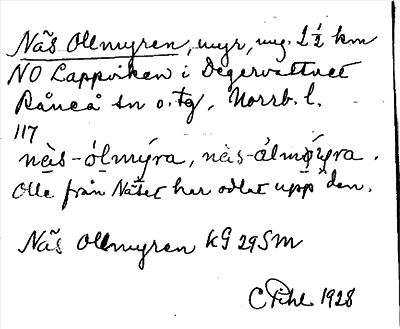 Näs Ollmyren, myr, mg. 2 ½ km
NO Lappviken i Degervattnet
Råneå sn o. tg, Norrb. l.
117
nàs-ólmýra, nàs-ålmýra.
Olle från Näset har odlat upp den.
Näs Ollmyren kG 29SM
C Pihl 1928